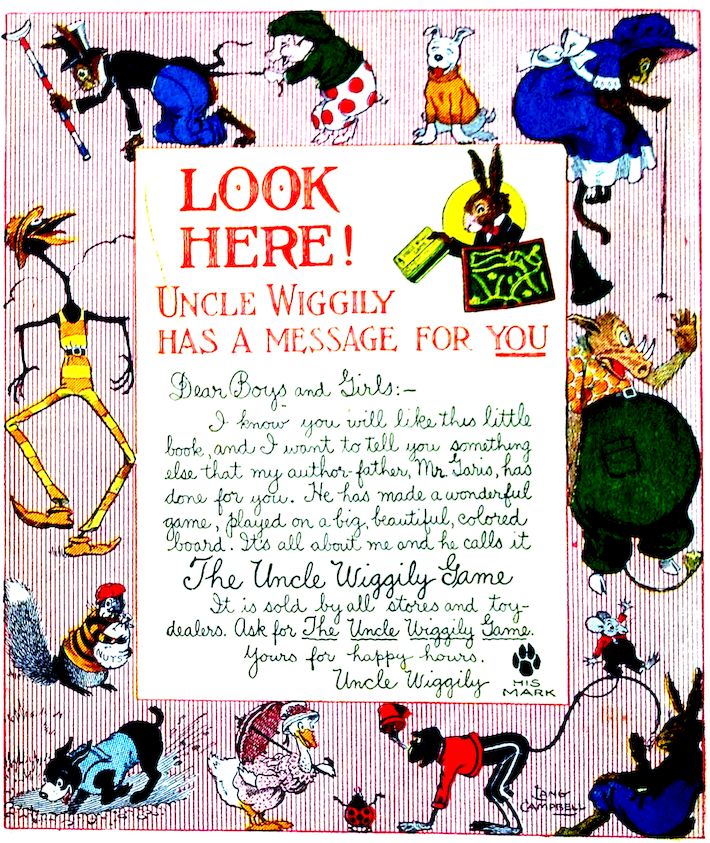 LOOK
HERE!
UNCLE WIGGILY
HAS A MESSAGE FOR YOU
Dear Boys and Girls:—
I know you will like this little
book, and I want to tell you something
else that my author-father, Mr. Garis, has
done for you. He has made a wonderful
game, played on a big, beautiful, colored
board. It's all about me and he calls it
The Uncle Wiggily Game
It is sold by all stores and toy-
dealers. Ask for The Uncle Wiggily Game.
Yours for happy hours.
Uncle Wiggily
HIS
MARK
LANG
CAMPBELL